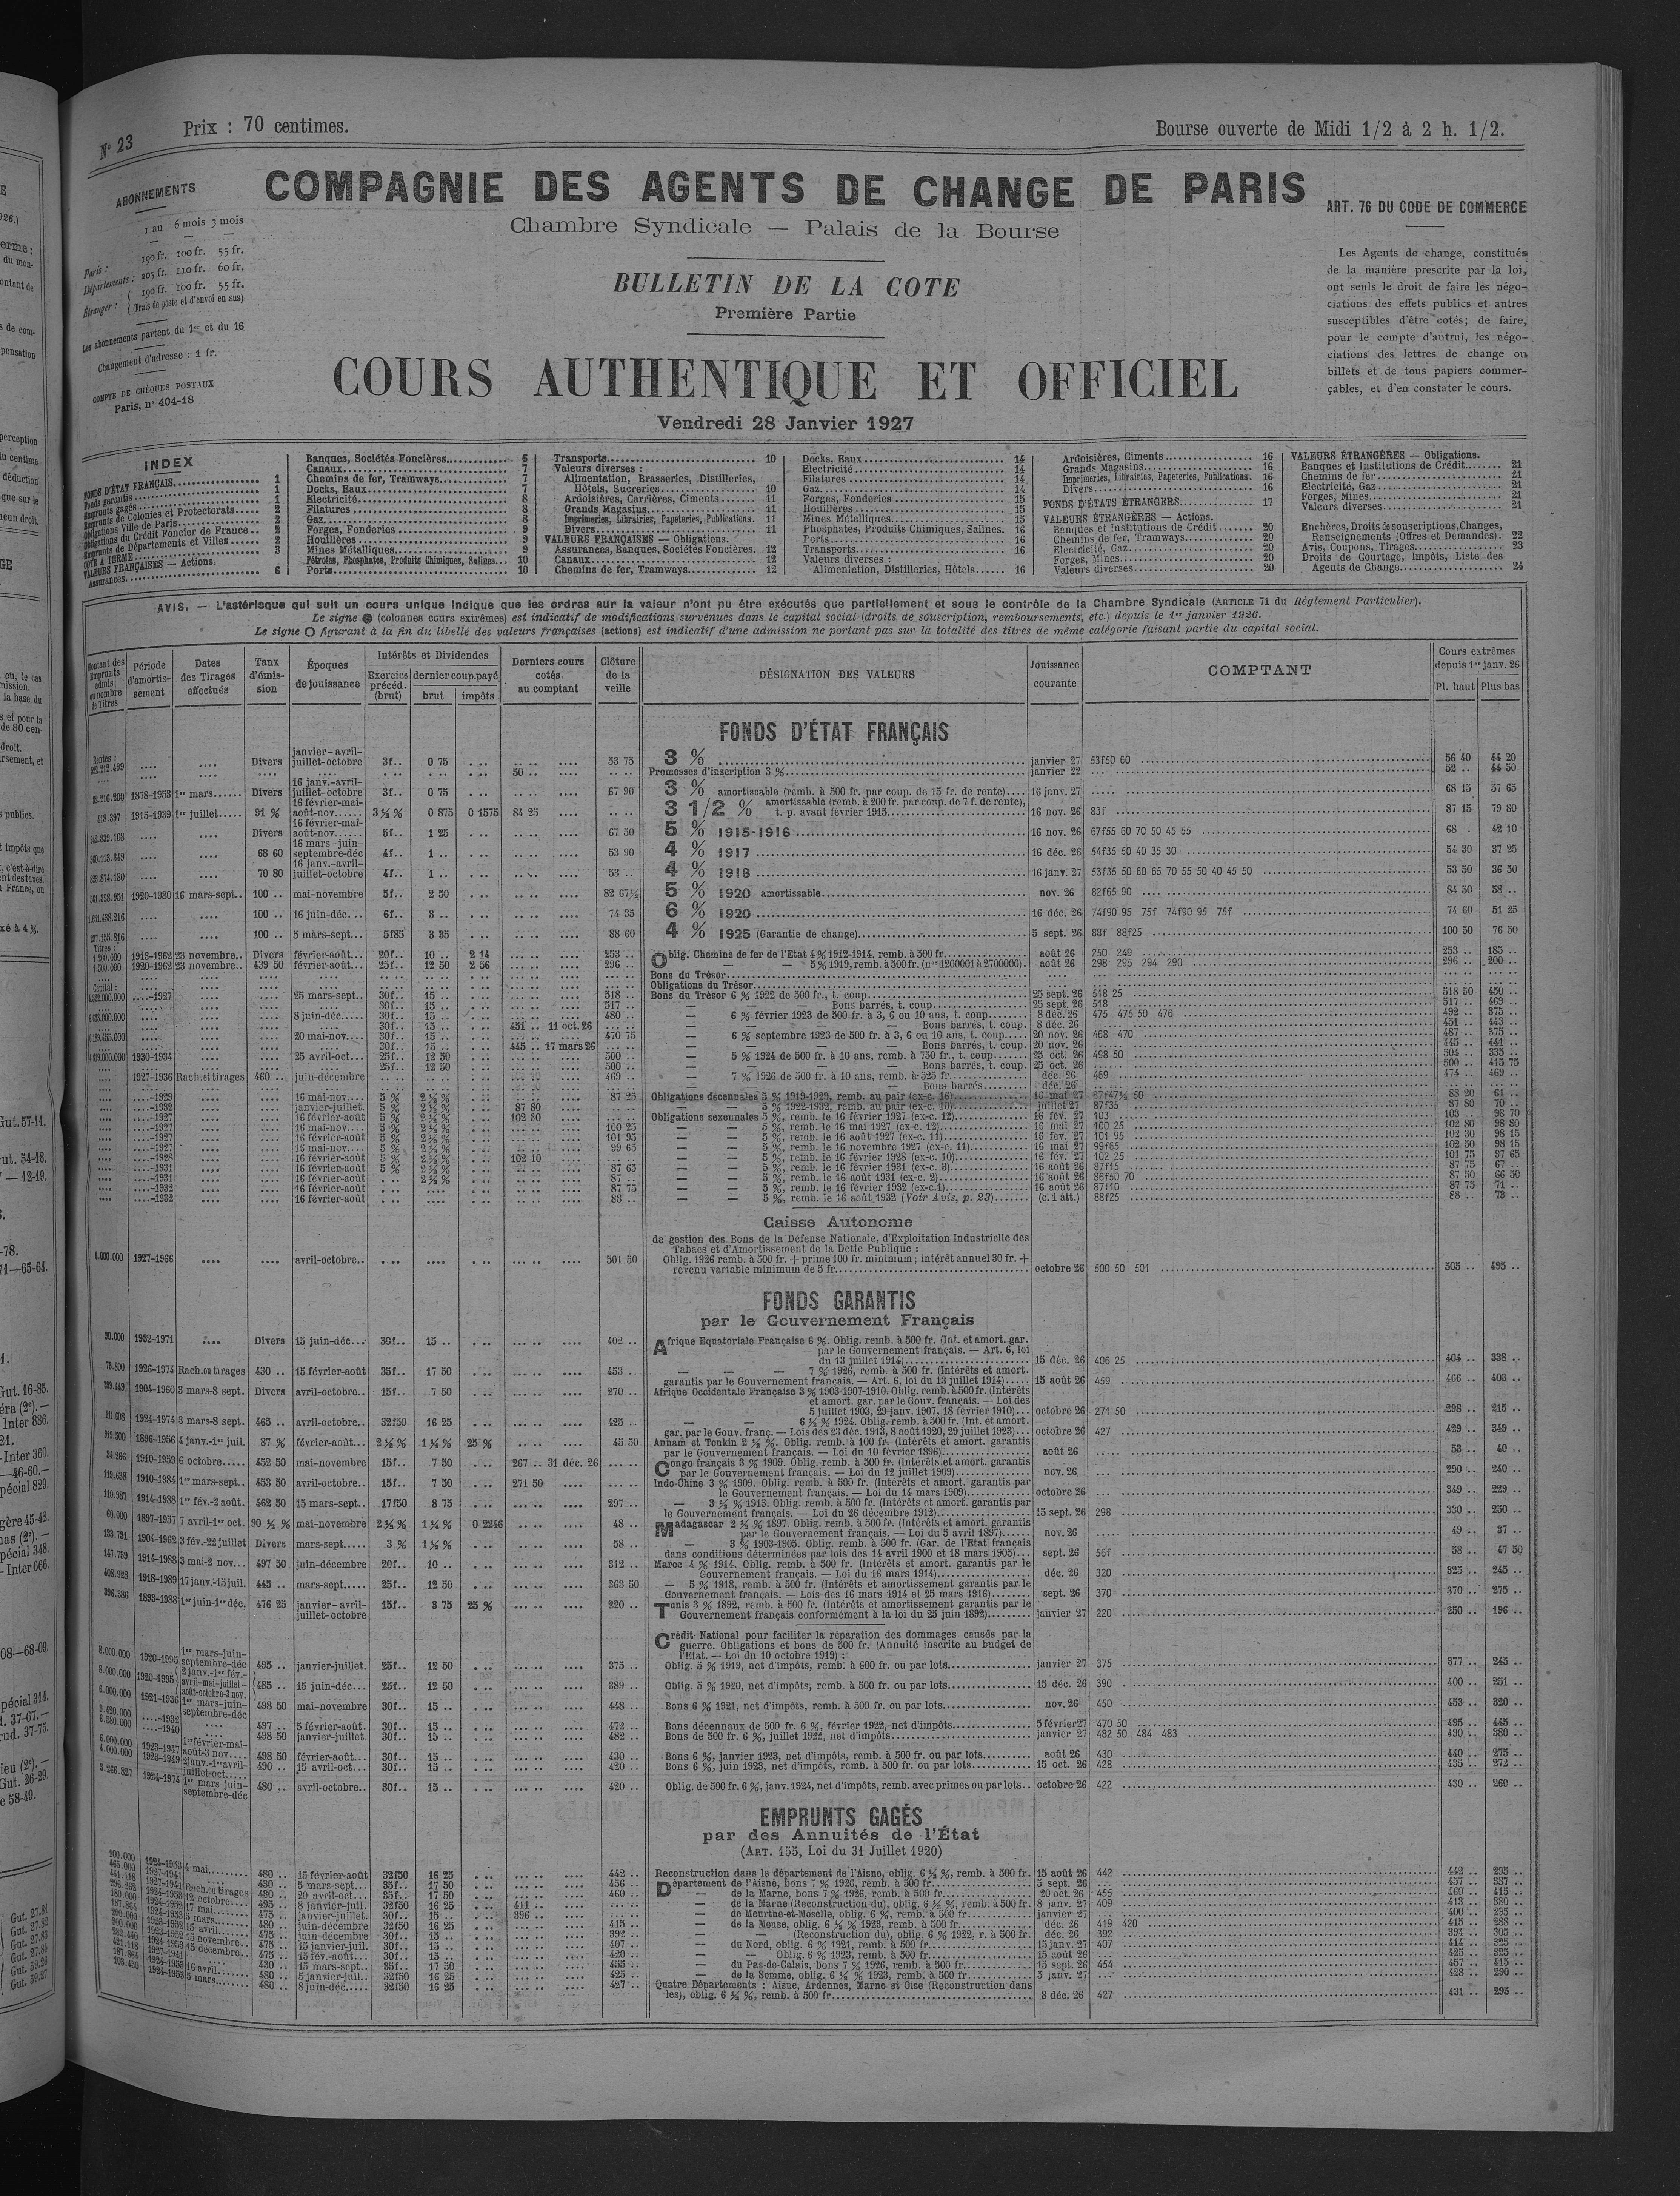 N° 23
Prix : 70 centimes.
Bourse ouverte de Midi 1/2 à 2 h. 1/2.
ABONNEMENTS
1 an 6 mois 3 mois
Paris : 190 fr. 100 fr. 55 fr.
Départements : 205 fr. 110 fr. 60 fr.
Étranger : 190 fr. 100 fr. 55 fr.
(Frais de poste et d'envoi en sus)
Les abonnements partent du 1er et du 16
Changement d'adresse : 1 fr.
COMPTE DE CHÈQUES POSTAUX
Paris, n° 404-18
COMPAGNIE DES AGENTS DE CHANGE DE PARIS
Chambre Syndicale — Palais de la Bourse
BULLETIN DE LA COTE
Première Partie
COURS AUTHENTIQUE ET OFFICIEL
Vendredi 28 Janvier 1927
ART. 76 DU CODE DE COMMERCE
Les Agents de change, constitués
de la manière prescrite par la loi,
ont seuls le droit de faire les négo-
ciations des effets publics et autres
susceptibles d'être cotés; de faire,
pour le compte d'autrui, les négo-
ciations des lettres de change ou
billets et de tous papiers commer-
çables, et d'en constater le cours.
INDEX
FONDS D'ÉTAT FRANÇAIS 1
Fonds garantis 1
Emprunts gagés 1
Emprunts de Colonies et Protectorats 2
Obligations Ville de Paris 2
Obligations du Crédit Foncier de France 2
Emprunts de Départements et Villes 2
COTE A TERME 3
VALEURS FRANÇAISES — Actions.
Assurances 6
Banques, Sociétés Foncières 6
Canaux 7
Chemins de fer, Tramways 7
Docks, Eaux 7
Electricité 8
Filatures 8
Gaz 8
Forges, Fonderies 9
Houillères 9
Mines Métalliques 9
Pétroles, Phosphates, Produits Chimiques, Salines 10
Ports 10
Transports 10
Valeurs diverses :
Alimentation, Brasseries, Distilleries,
Hôtels, Sucreries 10
Ardoisières, Carrières, Ciments 11
Grands Magasins 11
Imprimeries, Librairies, Papeteries, Publications. 11
Divers 11
VALEURS FRANÇAISES — Obligations.
Assurances, Banques, Sociétés Foncières. 12
Canaux 12
Chemins de fer, Tramways 12
Docks, Eaux 14
Electricité 14
Filatures 14
Gaz 14
Forges, Fonderies 15
Houillères 15
Mines Métalliques 15
Phosphates, Produits Chimiques, Salines. 16
Ports 16
Transports 16
Valeurs diverses :
Alimentation, Distilleries, Hôtels 16
Ardoisières, Ciments 16
Grands Magasins 16
Imprimeries, Librairies, Papeteries, Publications. 16
Divers 16
FONDS D'ÉTATS ÉTRANGERS 17
VALEURS ÉTRANGÈRES — Actions.
Banques et Institutions de Crédit 20
Chemins de fer, Tramways 20
Electricité, Gaz 20
Forges, Mines 20
Valeurs diverses 20
VALEURS ÉTRANGÈRES — Obligations.
Banques et Institutions de Crédit 21
Chemins de fer 21
Electricité, Gaz 21
Forges, Mines 21
Valeurs diverses 21
Enchères, Droits de souscriptions, Changes,
Renseignements (Offres et Demandes). 22
Avis, Coupons, Tirages 23
Droits de Courtage, Impôts, Liste des
Agents de Change 24
AVIS. — L'astérisque qui suit un cours unique indique que les ordres sur la valeur n'ont pu être exécutés que partiellement et sous le contrôle de la Chambre Syndicale (ARTICLE 71 du Règlement Particulier).
Le signe ● (colonnes cours extrêmes) est indicatif de modifications survenues dans le capital social (droits de souscription, remboursements, etc.) depuis le 1er janvier 1926.
Le signe O figurant à la fin du libellé des valeurs françaises (actions) est indicatif d'une admission ne portant pas sur la totalité des titres de même catégorie faisant partie du capital social.
Montant des Emprunts admis ou nombre de Titres
Période d'amortis-sement
Dates des Tirages effectués
Taux d'émis-sion
Époques de jouissance
Intérêts et Dividendes
Exercice précéd. (brut)
dernier coup. payé
brut impôts
Derniers cours cotés au comptant
Clôture de la veille
DÉSIGNATION DES VALEURS
Jouissance courante
COMPTANT
Cours extrêmes depuis 1er janv. 26
Pl. haut Plus bas
FONDS D'ÉTAT FRANÇAIS
Divers janvier-avril-juillet-octobre 3f.. 0 75 53 75 3 % janvier 27 53f50 60 56 40 44 20
50 .. Promesses d'inscription 3 % janvier 22 52 .. 44 50
1878-1953 1er mars Divers 16 janv.-avril-juillet-octobre 3f.. 0 75 67 90 3 % amortissable (remb. à 500 fr. par coup. de 15 fr. de rente) 16 janv. 27 68 15 57 65
418.397 1915-1939 1er juillet 91 % 16 février-mai-août-nov. 3 ½ % 0 875 0 1575 84 25 3 1/2 % amortissable (remb. à 200 fr. par coup. de 7 f. de rente), t. p. avant février 1915 16 nov. 26 83f 87 15 79 80
Divers 16 février-mai-août-nov. 5f.. 1 25 67 50 5 % 1915-1916 16 nov. 26 67f55 60 70 50 45 55 68 . 42 10
68 60 16 mars-juin-septembre-déc 4f.. 1 .. 53 90 4 % 1917 16 déc. 26 54f35 50 40 35 30 54 30 37 25
70 80 16 janv.-avril-juillet-octobre 4f.. 1 .. 53 .. 4 % 1918 16 janv. 27 53f35 50 60 65 70 55 50 40 45 50 53 50 36 50
1920-1980 16 mars-sept. 100 .. mai-novembre 5f.. 2 50 82 67½ 5 % 1920 amortissable nov. 26 82f65 90 84 50 58 ..
100 .. 16 juin-déc. 6f.. 3 .. 74 35 6 % 1920 16 déc. 26 74f90 95 75f 74f90 95 75f 74 60 51 25
100 .. 5 mars-sept. 5f85 3 35 88 60 4 % 1925 (Garantie de change) 5 sept. 26 88f 88f25 100 50 76 50
1913-1962 23 novembre Divers février-août 20f.. 10 .. 2 14 253 .. Oblig. Chemins de fer de l'Etat 4 % 1912-1914, remb. à 500 fr. août 26 250 249 253 .. 185 ..
1920-1962 23 novembre 439 50 février-août 25f.. 12 50 2 56 296 .. — — 5 % 1919, remb. à 500 fr. (nos 1200001 à 2700000). août 26 298 295 294 290 296 .. 200 ..
Bons du Trésor
Obligations du Trésor
-1927 25 mars-sept. 30f.. 15 .. 518 .. Bons du Trésor 6 % 1922 de 500 fr., t. coup. 25 sept. 26 518 25 518 50 450 ..
30f.. 15 .. 517 .. — — Bons barrés, t. coup. 25 sept. 26 518 517 .. 469 ..
8 juin-déc. 30f.. 15 .. 480 .. — 6 % février 1923 de 500 fr. à 3, 6 ou 10 ans, t. coup. 8 déc. 26 475 475 50 476 492 .. 375 ..
30f.. 15 .. 451 .. 11 oct. 26 — Bons barrés, t. coup. 8 déc. 26 451 .. 443 ..
20 mai-nov. 30f.. 15 .. 470 75 — 6 % septembre 1923 de 500 fr. à 3, 6 ou 10 ans, t. coup. 20 nov. 26 468 470 487 .. 375 ..
30f.. 15 .. 445 .. 17 mars 26 — Bons barrés, t. coup. 20 nov. 26 445 .. 441 ..
1930-1934 25 avril-oct. 25f.. 12 50 500 .. — 5 % 1924 de 500 fr. à 10 ans, remb. à 750 fr., t. coup. 25 oct. 26 498 50 504 .. 335 ..
25f.. 12 50 500 .. — Bons barrés, t. coup. 25 oct. 26 500 .. 415 75
1927-1936 Rach. et tirages 460 .. juin-décembre 469 .. — 7 % 1926 de 500 fr. à 10 ans, remb. à 525 fr. déc. 26 469 474 .. 469 ..
— Bons barrés déc. 26
-1929 16 mai-nov. 5 % 2 ½ % 87 25 Obligations décennales 5 % 1919-1929, remb. au pair (ex-c. 16) 16 mai 27 87f47½ 50 88 20 61 ..
-1932 janvier-juillet. 5 % 2 ½ % 87 80 — 5 % 1922-1932, remb. au pair (ex-c. 10) juillet 27 87f35 87 80 70 ..
-1927 16 février-août 5 % 2 ½ % 102 80 Obligations sexennales 5 %, remb. le 16 février 1927 (ex-c. 12) 16 fév. 27 103 103 .. 98 70
-1927 16 mai-nov. 5 % 2 ½ % 100 25 — — 5 %, remb. le 16 mai 1927 (ex-c. 12) 16 mai 27 100 25 102 80 98 80
-1927 16 février-août 5 % 2 ½ % 101 95 — — 5 %, remb. le 16 août 1927 (ex-c. 11) 16 fev. 27 101 95 102 30 98 15
-1927 16 mai-nov. 5 % 2 ½ % 99 65 — — 5 %, remb. le 16 novembre 1927 (ex-c. 11) 16 mai 27 99f65 102 50 98 15
-1928 16 février-août 5 % 2 ½ % 102 10 — — 5 %, remb. le 16 février 1928 (ex-c. 10) 16 fév. 27 102 25 101 75 97 65
-1931 16 février-août 5 % 2 ½ % 87 65 — — 5 %, remb. le 16 février 1931 (ex-c. 3) 16 août 26 87f15 87 75 67 ..
-1931 16 février-août 2 ½ % 87 .. — — 5 %, remb. le 16 août 1931 (ex-c. 2) 16 août 26 86f50 70 87 50 66 50
-1932 16 février-août 87 75 — — 5 %, remb. le 16 février 1932 (ex-c.1) 16 août 26 87f10 87 75 71 ..
-1932 16 février-août 88 .. — — 5 %, remb. le 16 août 1932 (Voir Avis, p. 23) (c. 1 att.) 88f25 88 .. 73 ..
Caisse Autonome
de gestion des Bons de la Défense Nationale, d'Exploitation Industrielle des
Tabacs et d'Amortissement de la Dette Publique :
6.000.000 1927-1966 avril-octobre 501 50 Oblig. 1926 remb. à 500 fr. + prime 100 fr. minimum; intérêt annuel 30 fr. +
revenu variable minimum de 5 fr. octobre 26 500 50 501 505 .. 495 ..
FONDS GARANTIS
par le Gouvernement Français
1932-1971 Divers 15 juin-déc. 30f.. 15 .. 402 .. Afrique Equatoriale Française 6 %. Oblig. remb. à 500 fr. (Int. et amort. gar.
par le Gouvernement français. — Art. 6, loi
du 13 juillet 1914) 15 déc. 26 406 25 404 .. 338 ..
1926-1974 Rach. ou tirages 430 .. 15 février-août 35f.. 17 50 453 .. — — — 7 % 1926, remb. à 500 fr. (Intérêts et amort.
garantis par le Gouvernement français. — Art. 6, loi du 13 juillet 1914) 15 août 26 459 466 .. 403 ..
1904-1960 3 mars-8 sept. Divers avril-octobre 15f.. 7 50 270 .. Afrique Occidentale Française 3 % 1903-1907-1910. Oblig. remb. à 500 fr. (Intérêts
et amort. gar. par le Gouv. français. — Lois des
5 juillet 1903, 29 janv. 1907, 18 février 1910) octobre 26 271 50 298 .. 215 ..
1924-1974 3 mars-8 sept. 465 .. avril-octobre 32f50 16 25 425 .. — — 6 ½ % 1924. Oblig. remb. à 500 fr. (Int. et amort.
gar. par le Gouv. franç. — Lois des 23 déc. 1913, 8 août 1920, 29 juillet 1923) octobre 26 427 429 .. 349 ..
1896-1956 4 janv.-1er juil. 87 % février-août 2 ½ % 1 ¼ % 25 % 45 50 Annam et Tonkin 2 ½ %. Oblig. remb. à 100 fr. (Intérêts et amort. garantis
par le Gouvernement français. — Loi du 10 février 1896) août 26 53 .. 40 ..
1910-1959 6 octobre 452 50 mai-novembre 15f.. 7 50 267 .. 31 déc. 26 Congo français 3 % 1909. Oblig. remb. à 500 fr. (Intérêts et amort. garantis
par le Gouvernement français. — Loi du 12 juillet 1909) nov. 26 290 .. 240 ..
1910-1984 1er mars-sept. 453 50 avril-octobre 15f.. 7 50 271 50 Indo-Chine 3 % 1909. Oblig. remb. à 500 fr. (Intérêts et amort. garantis par
le Gouvernement français. — Loi du 14 mars 1909) octobre 26 349 .. 229 ..
1914-1988 1er fév.-2 août. 462 50 15 mars-sept. 17f50 8 75 297 .. — 3 ½ % 1913. Oblig. remb. à 500 fr. (Intérêts et amort. garantis par
le Gouvernement français. — Loi du 26 décembre 1912) 15 sept. 26 298 330 .. 250 ..
60.000 1897-1957 7 avril-1er oct. 90 ½ % mai-novembre 2 ½ % 1 ¼ % 0 2246 48 .. Madagascar 2 ½ % 1897. Oblig. remb. à 500 fr. (Intérêts et amort. garantis
par le Gouvernement français. — Loi du 5 avril 1897) nov. 26 49 .. 37 ..
1904-1962 3 fév.-22 juillet Divers mars-sept. 3 % 1 ½ % 58 .. — 3 % 1903-1905. Oblig. remb. à 500 fr. (Gar. de l'Etat français
dans conditions déterminées par lois des 14 avril 1900 et 18 mars 1905) sept. 26 56f 58 .. 47 50
1914-1988 3 mai-2 nov. 497 50 juin-décembre 20f.. 10 .. 312 .. Maroc 4 % 1914. Oblig. remb. à 500 fr. (Intérêts et amort. garantis par le
Gouvernement français. — Loi du 16 mars 1914) déc. 26 320 325 .. 245 ..
1918-1989 17 janv.-15 juil. 445 .. mars-sept. 25f.. 12 50 363 50 — 5 % 1918, remb. à 500 fr. (Intérêts et amortissement garantis par le
Gouvernement français. — Lois des 16 mars 1914 et 25 mars 1916) sept. 26 370 370 .. 275 ..
1893-1988 1er juin-1er déc. 476 25 janvier-avril-juillet-octobre 15f.. 3 75 25 % 220 .. Tunis 3 % 1892, remb. à 500 fr. (Intérêts et amortissement garantis par le
Gouvernement français conformément à la loi du 25 juin 1892) janvier 27 220 250 .. 196 ..
Crédit National pour faciliter la réparation des dommages causés par la
guerre. Obligations et bons de 500 fr. (Annuité inscrite au budget de
l'Etat. — Loi du 10 octobre 1919) :
8.000.000 1920-1995 1er mars-juin-septembre-déc 495 .. janvier-juillet. 25f.. 12 50 375 .. Oblig. 5 % 1919, net d'impôts, remb. à 600 fr. ou par lots janvier 27 375 377 .. 245 ..
8.000.000 1920-1995 2 janv.-1er fév.-avril-mai-juillet-août-octobre-3 nov. 485 .. 15 juin-déc. 25f.. 12 50 389 .. Oblig. 5 % 1920, net d'impôts, remb. à 500 fr. ou par lots 15 déc. 26 390 400 .. 251 ..
6.000.000 1921-1936 1er mars-juin-septembre-déc 498 50 mai-novembre 30f.. 15 .. 448 .. Bons 6 % 1921, net d'impôts, remb. à 500 fr. ou par lots nov. 26 450 453 .. 320 ..
-1932 497 .. 5 février-août. 30f.. 15 .. 472 .. Bons décennaux de 500 fr. 6 %, février 1922, net d'impôts 5 février 27 470 50 495 .. 445 ..
-1940 498 50 janvier-juillet. 30f.. 15 .. 482 .. Bons de 500 fr. 6 %, juillet 1922, net d'impôts janvier 27 482 50 484 483 490 .. 380 ..
6.000.000 1923-1947 1er février-mai-août-3 nov. 498 50 février-août 30f.. 15 .. 430 .. Bons 6 %, janvier 1923, net d'impôts, remb. à 500 fr. ou par lots août 26 430 440 .. 275 ..
4.000.000 1923-1949 2 janv.-1er avril-juillet-oct. 490 .. 15 avril-oct. 30f.. 15 .. 420 .. Bons 6 %, juin 1923, net d'impôts, remb. à 500 fr. ou par lots 15 oct. 26 428 435 .. 272 ..
1924-1974 1er mars-juin-septembre-déc 480 .. avril-octobre 30f.. 15 .. 420 .. Oblig. de 500 fr. 6 %, janv. 1924, net d'impôts, remb. avec primes ou par lots octobre 26 422 430 .. 260 ..
EMPRUNTS GAGÉS
par des Annuités de l'État
(ART. 155, Loi du 31 Juillet 1920)
480 .. 15 février-août 32f50 16 25 442 .. Reconstruction dans le département de l'Aisne, oblig. 6 ½ %, remb. à 500 fr. 15 août 26 442 442 .. 295 ..
480 .. 5 mars-sept. 35f.. 17 50 456 .. Département de l'Aisne, bons 7 % 1926, remb. à 500 fr. 5 sept. 26 457 .. 387 ..
480 .. 20 avril-oct. 35f.. 17 50 460 .. — de la Marne, bons 7 % 1926, remb. à 500 fr. 20 oct. 26 455 460 .. 415 ..
495 .. 8 janvier-juil. 32f50 16 25 411 .. — de la Marne (Reconstruction du), oblig. 6 ½ %, remb. à 500 fr. 8 janv. 27 409 413 .. 330 ..
475 .. janvier-juillet. 30f.. 15 .. 396 .. — de Meurthe-et-Moselle, oblig. 6 %, remb. à 500 fr. janvier 27 400 .. 295 ..
480 .. juin-décembre 32f50 16 25 415 .. — de la Meuse, oblig. 6 ½ % 1923, remb. à 500 fr. déc. 26 419 420 415 .. 288 ..
475 .. juin-décembre 30f.. 15 .. 392 .. — — (Reconstruction du), oblig. 6 % 1922, r. à 500 fr. déc. 26 392 394 .. 305 ..
475 .. 15 janvier-juil. 30f.. 15 .. 407 .. — du Nord, oblig. 6 % 1921, remb. à 500 fr. 15 janv. 27 407 414 .. 325 ..
475 .. 15 fév.-août 30f.. 15 .. 420 .. — — Oblig. 6 % 1923, remb. à 500 fr. 15 août 26 425 .. 325 ..
480 .. 15 mars-sept. 35f.. 17 50 455 .. — du Pas-de-Calais, bons 7 % 1926, remb. à 500 fr. 15 sept. 26 454 457 .. 415 ..
480 .. 5 janvier-juil. 32f50 16 25 425 .. — de la Somme, oblig. 6 ½ % 1923, remb. à 500 fr. 5 janv. 27 428 .. 290 ..
480 .. 8 juin-déc. 32f50 16 25 427 .. Quatre Départements : Aisne, Ardennes, Marne et Oise (Reconstruction dans
les), oblig. 6 ½ %, remb. à 500 fr. 8 déc. 26 427 431 .. 295 ..